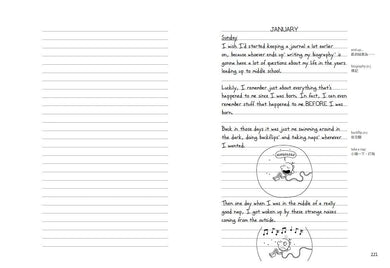 JANUARY
Sunday
I wish I'd started keeping a journal a lot earlier
on, because whoever ends up writing my biography is
gonna have a lot of questions about my life in the years
leading up to middle school.
Luckily, I remember just about everything that's
happened to me since I was born. In fact, I can even
remember stuff that happened to me BEFORE I was
born.
Back in those days it was just me swimming around in
the dark, doing backflips and taking naps whenever
I wanted.
Then one day when I was in the middle of a really
good nap, I got woken up by these strange noises
coming from the outside.
221